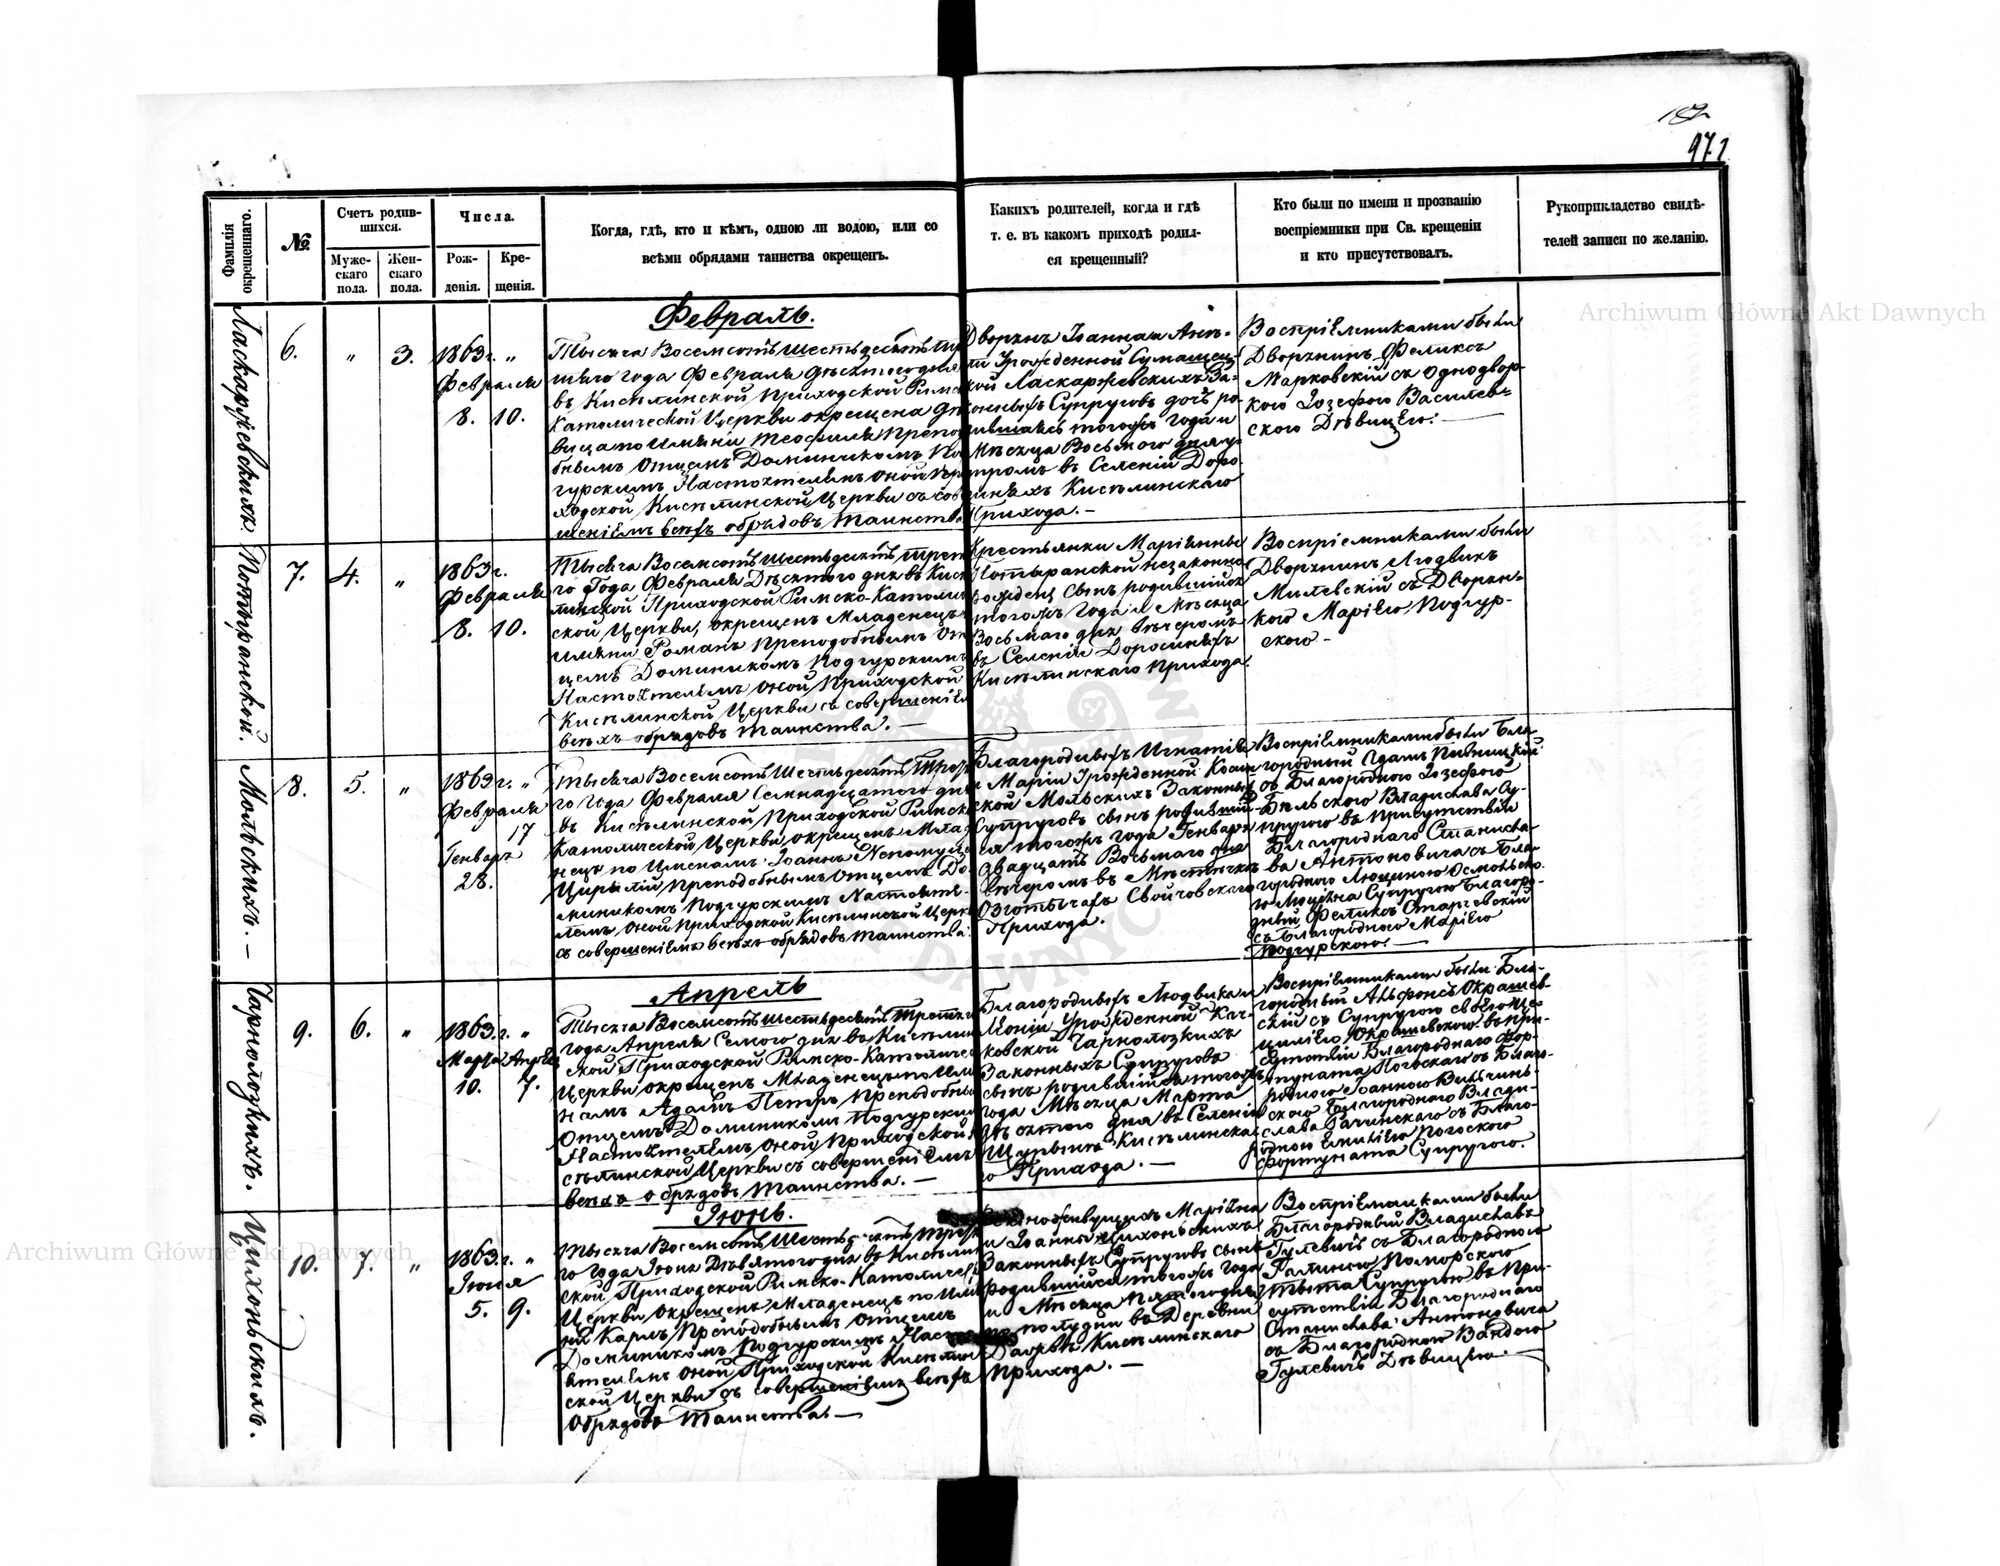 182
971
Фамилія окрещеннаго.
№
Счетъ родив-
шихся.
Муже-
скаго
пола.
Жен-
скаго
пола.
Числа.
Рож-
денія.
Кре-
щенія.
Когда, гдѣ, кто и кѣмъ, одною ли водою, или со
всѣми обрядами таинства окрещенъ.
Какихъ родителей, когда и гдѣ
т. е. въ какомъ приходѣ родил-
ся крещенный?
Кто были по имени и прозванію
воспріемники при Св. крещеніи
и кто присутствовалъ.
Рукоприкладство свидѣ-
телей записи по желанію.
Archiwum Główne Akt Dawnych
Февраль.
Ласкаржевскихъ
6.
"
3.
1863 г. "
Февраля
8. 10.
Тысяча Восемсотъ Шестьдесятъ Тре
тьяго года Февраля Десятого дня
въ Кисѣлинской Приходской Римско
Католической Церкви окрещена Дѣ
вица по Имѣни Теофиля Препо
бнымъ Отцемъ Доминикомъ По
гурскимъ Настоятелемъ оной При
ходской Кисѣлинской Церкви съ сов
шеніемъ всѣхъ обрядовъ Таинств
Дворянъ Іоанна и Анѣ-
ли Урожденной Сумашец-
кой Ласкаржевскихъ За-
конныхъ Супруговъ дочь ро-
дившаясь тогожъ года и
Мѣсяца Восьмого дня у-
тромъ въ Селеніи Доро-
синяхъ Кисѣлинскаго
Прихода. —
Воспріемниками были
Дворянинъ Феликсъ
Марковскій съ Однодвор-
кою Іозефою Василев-
скою Дѣвицею. —
Потыранской.
7.
4.
"
1863 г.
Февраля
8. 10.
Тысяча Восемсотъ Шестьдесятъ трет
го Года Февраля Десятого дня въ Кисѣ
линской Приходской Римско-Католи
ской Церкви, окрещенъ Младенецъ
имени Романъ Преподобнымъ От
цемъ Доминикомъ Подгурскимъ
Настоятелемъ оной Приходской
Кисѣлинской Церкви съ совершеніем
всѣхъ обрядовъ Таинства. —
Крестьянки Маріянны
Потыранской незаконно
рожденъ сынъ родившійся
тогожъ Года и Мѣсяца
Восьмаго дня вечеромъ
въ Селеніи Доросиняхъ
Кисѣлинскаго Прихода.
Воспріемниками были
Дворянинъ Людвикъ
Милевскій съ Дворян-
кою Маріею Подгур-
скою —
Мольскихъ. —
8.
5.
"
1863 г. "
Февраля
17
Генваря
28.
Тысяча Восемсотъ Шестьдесятъ Трет
го Года Февраля Семнадцатого дня
въ Кисѣлинской Приходской Римско
Католической Церкви, окрещенъ Мла
нецъ по Именамъ Іоаннъ Непомуц
Цирылій Преподобнымъ Отцемъ До-
миникомъ Подгурскимъ Настояте-
лемъ оной Приходской Кисѣлинской Церк
съ совершеніемъ всѣхъ обрядовъ Таинства.
Благородныхъ Игнатія
и Маріи Урожденной
ской Мольскихъ Законныхъ
Супруговъ сынъ родившій-
ся тогожъ года Генваря
двадцать Восьмаго дня
вечеромъ въ Мѣстечкѣ
Озютычахъ Свойчовскаго
Прихода.
Воспріемниками были Бла-
городный Адамъ Пивницкій
съ Благородною Іозефою
Бѣльского Владислава Су-
пругою въ присутствіи
Благороднаго Станисла-
ва Антоновича съ Бла-
городною Люциною
Супругою Благоро-
дный Феликсъ
съ Благородною Маріею
Подгурскою. —
Апрель
Чарнолузкихъ.
9.
6.
"
1863 г. "
Марта Апрѣля
10. 7.
Тысяча Восемсотъ Шестьдесятъ Третьяг
года Апреля Семого дня въ Кисѣлин
ской Приходской Римско-Католичес
Церкви окрещенъ Младенецъ по Име
намъ Адамъ Петръ Преподобны
Отцемъ Доминикомъ Подгурски
Настоятелемъ оной Приходской К
сѣлинской Церкви съ совершеніемъ
всѣхъ обрядовъ Таинства. —
Благородныхъ Людвика и
Леоніи Урожденной Кач-
ковской Чарнолузкихъ
Законныхъ Супруговъ
сынъ родившійся тогожъ
года Мѣсяца Марта
Десятого дня въ Селеніи
Щурынь Кисѣлинска-
го Прихода. —
Воспріемниками были Бла-
городный Альфонсъ Окрашев-
скій съ Супругою своею Це-
цилею Окрашевскою въ при-
сутствіи Благороднаго Фор-
туната Погоскаго съ Благо-
родною Іоанною Вильчинь-
ского Благородного Влади-
слава Гачинскаго съ Благо-
родною Емиліею Погоского
Фортуната Супругою.
Іюнь.
Цихоньскихъ.
10.
7.
"
1863 г. "
Іюня
5. 9.
Тысяча Восемсотъ Шестьдесятъ Трет
го Года Іюня Девятого дня въ Кисѣлин
ской Приходской Римско-Католичес
Церкви Окрещенъ Младенецъ по Име
ни Карлъ Преподобнымъ Отцемъ
Доминикомъ Подгурскимъ Наст
ятелемъ оной Приходской Кисѣлин
ской Церкви съ совершеніемъ всѣхъ
Обрядовъ Таинства. —
Маріяна
и Іоанны Цихоньскихъ
Законныхъ Супруговъ сынъ
родившійся тогожъ года
и Мѣсяца Пятого дня
по полудни въ Деревни
Кисѣлинскаго
Прихода. —
Воспріемниками были
Благородный Владиславъ
Гулевичъ съ Благородною
Галиною Поморского
Тыта Супругою въ При-
сутствіи Благороднаго
Станислава Антоновича
съ Благородною Вандою
Гулевичъ Дѣвицею. —
Archiwum Główne Akt Dawnych